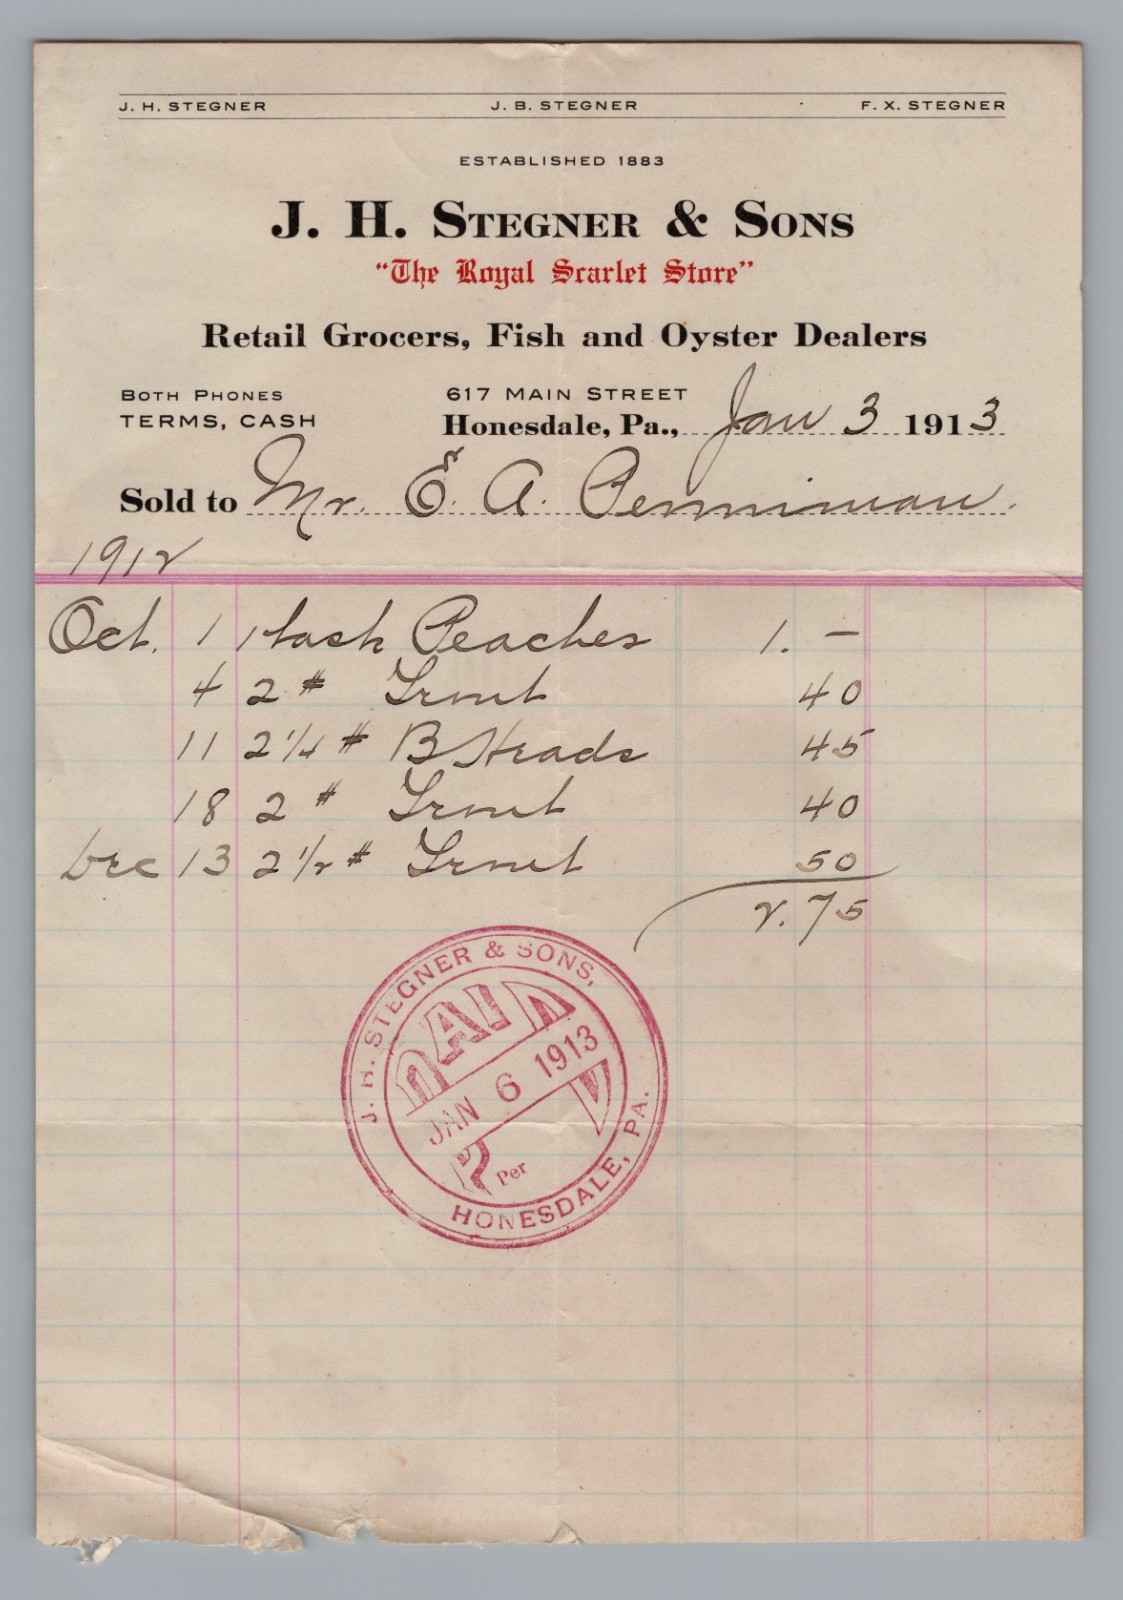 J. H. STEGNER J. B. STEGNER F. X. STEGNER
ESTABLISHED 1883
J. H. STEGNER & SONS
"The Royal Scarlet Store"
Retail Grocers, Fish and Oyster Dealers
BOTH PHONES 617 MAIN STREET
TERMS, CASH Honesdale, Pa., Jan 3 1913
Sold to Mr. E. A. Penniman.
1912
Oct. 1 1 bask Peaches 1. –
4 2 # Trout 40
11 2 1/4 # B Heads 45
18 2 # Trout 40
Dec 13 2 1/2 # Trout 50
2.75
J. H. STEGNER & SONS,
PAID
JAN 6 1913
Per
HONESDALE, PA.